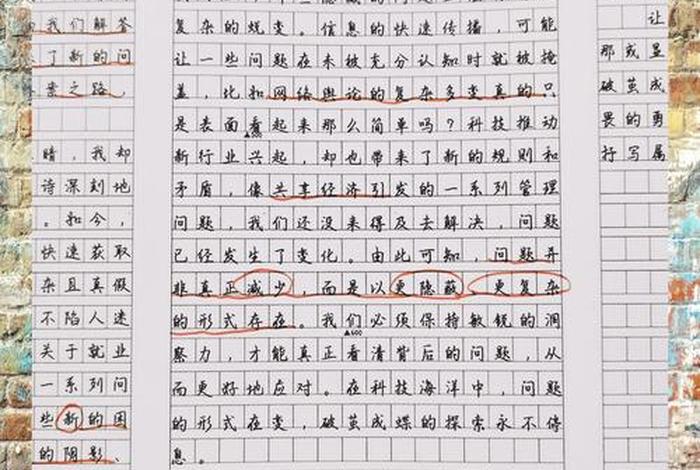 我们解答
了新的问
案之路，
暗，我却
诗深刻地
。和今，
快速获取
杂且真假
不陷人迷
关于就业
一系列问
些新的困
的阴影、
复杂的蜕变。信息的快速传播，可能
让一些问题在未被充分认知时就被掩
盖，比和网络舆论的复杂多变真的只
是表面看起来那么简单吗？科技推动
新行业兴起，却也带来了新的规则和
矛盾，像共享经济引发的一系列管理
问题，我们还没来得及去解决，问题
已经发生了变化。由此可知，问题并
非真正减少，而是以更隐蔽、更复杂
的形式存在。我们必须保持敏锐的洞
▲600
察力，才能真正看清背后的问题，从
而更好地应对。在科技海洋中，问题
的形式在变，破茧成蝶的探索永不停
息。
让
那或显
破茧成
畏的勇
抒写属